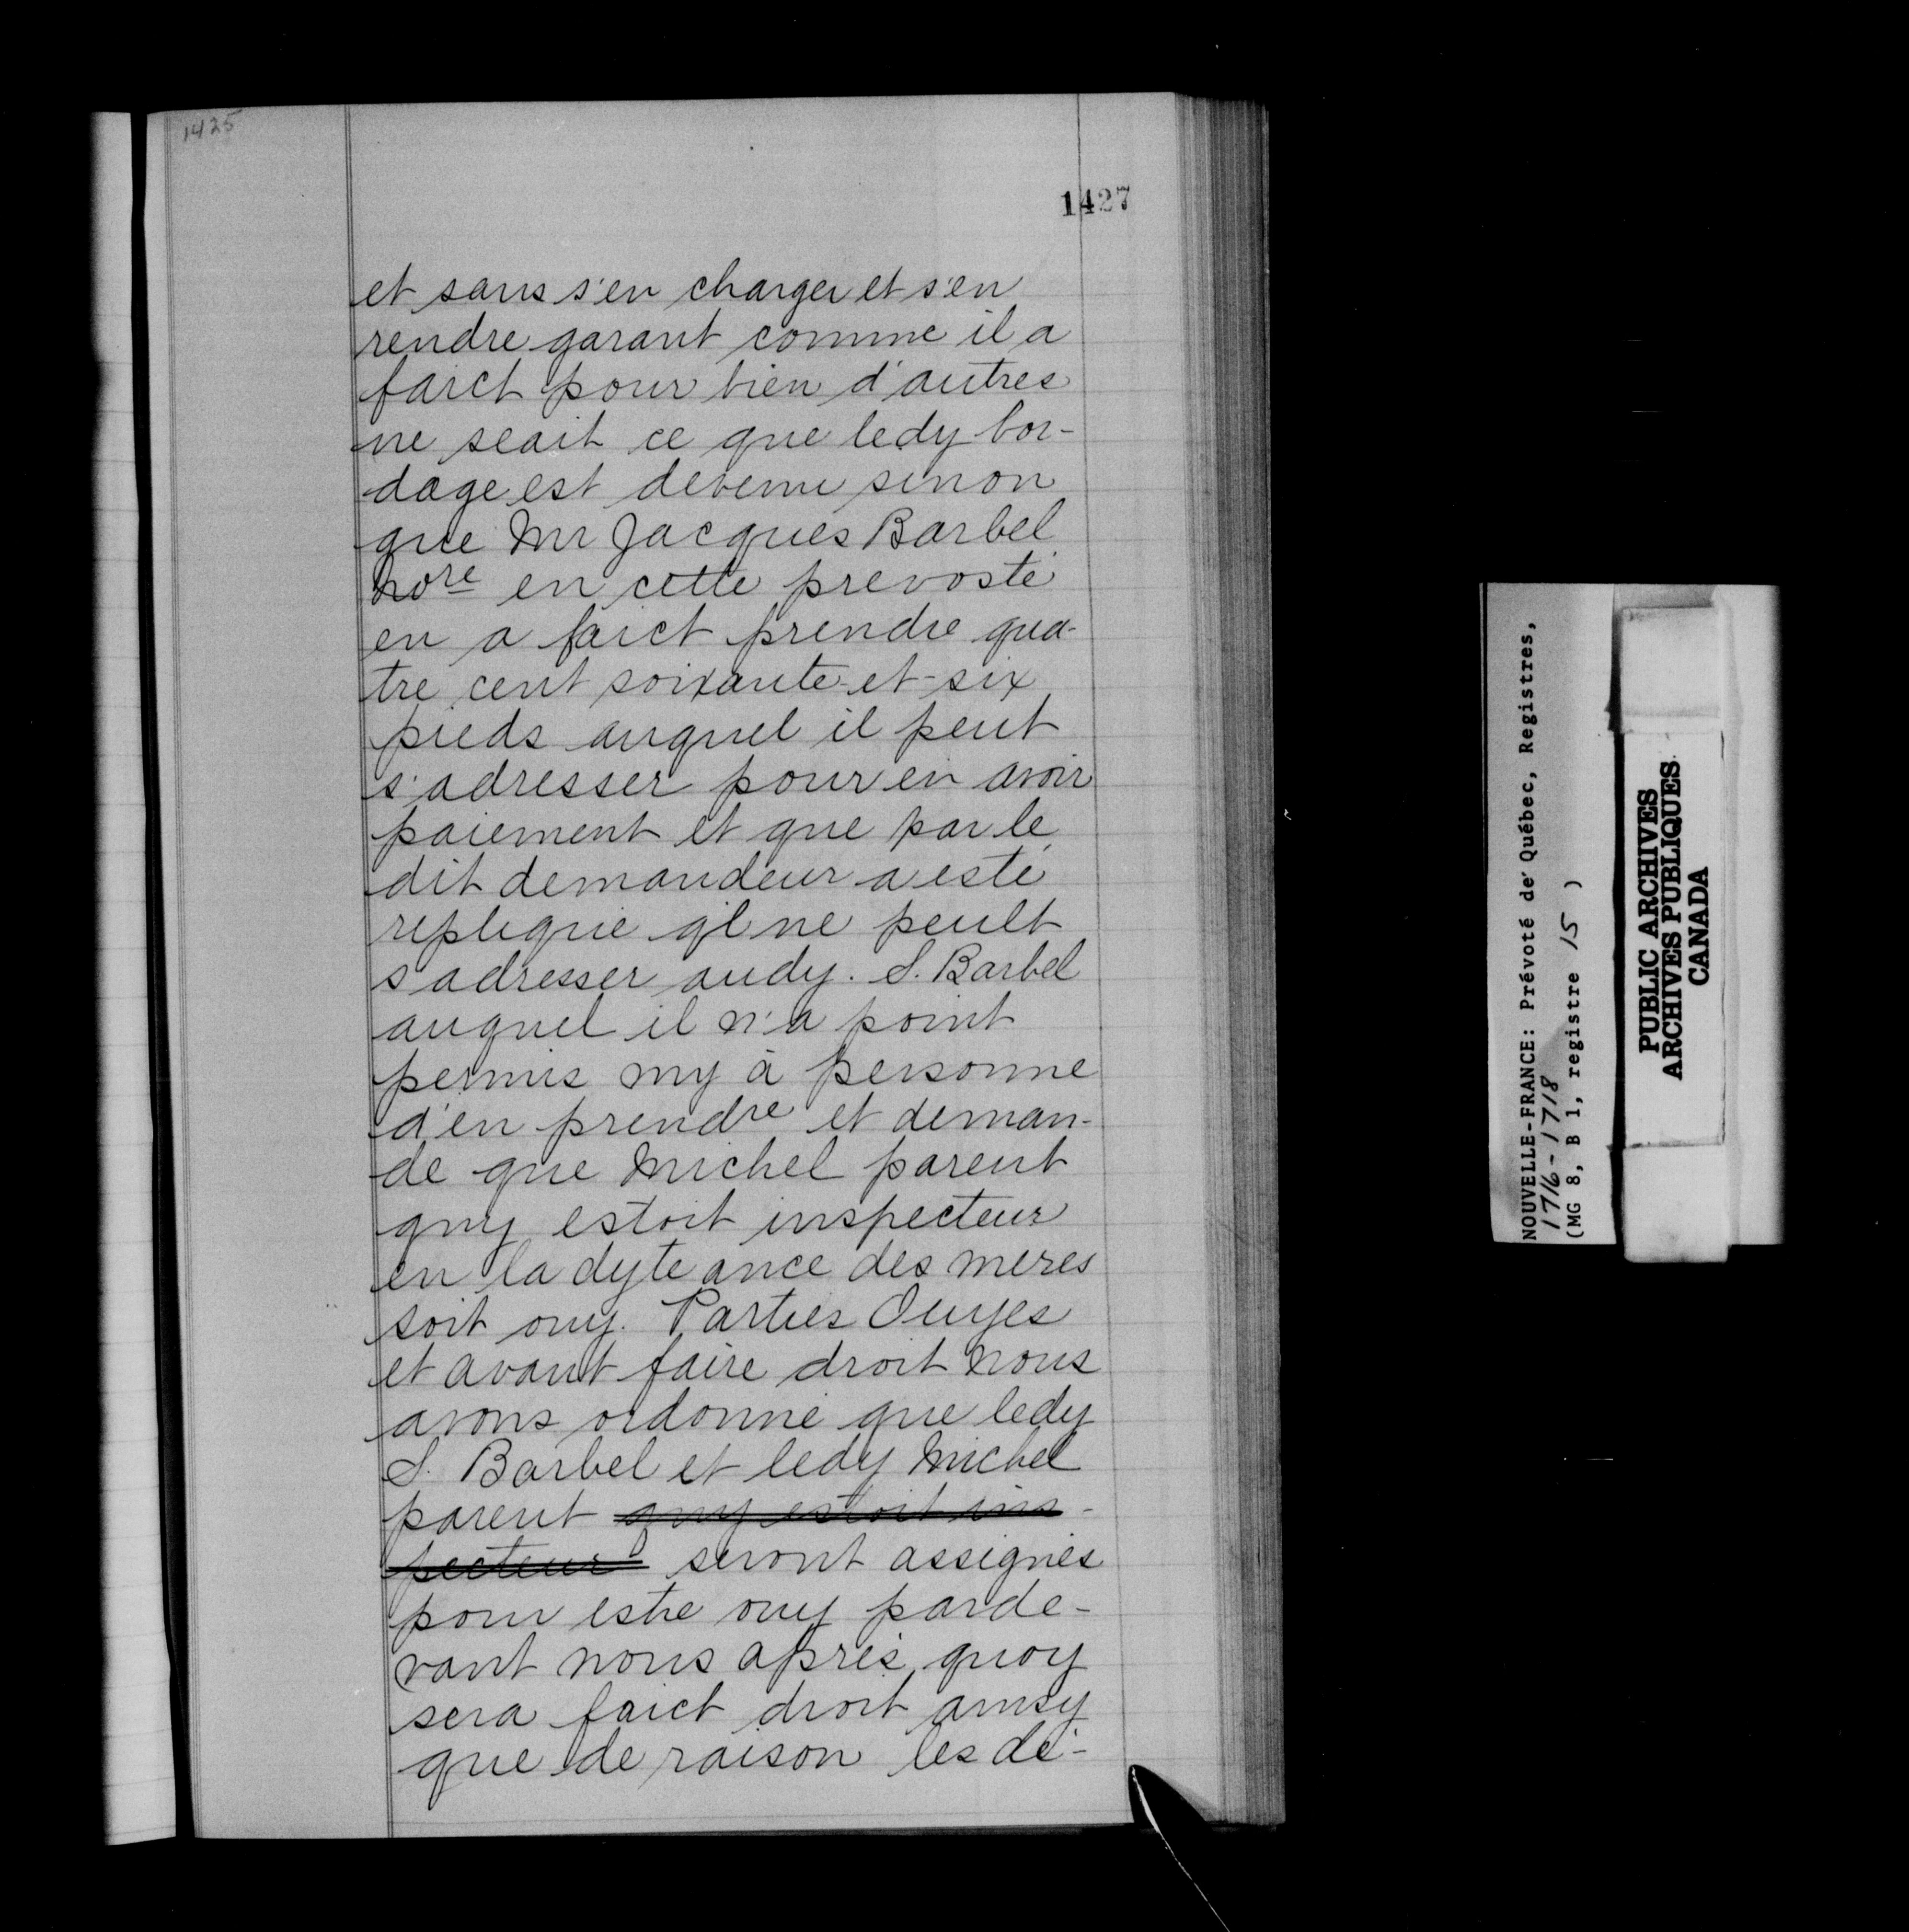 1425
1427
et sans s'en charger et s'en
rendre garant comme il a
faict pour bien d'autres
ne scait ce que ledy bor-
dage est devenu sinon
que Mr Jacques Barbel
Nore en cette prevosté
en a faict prendre qua-
tre cent soixante-et-six
pieds auquel il peut
s'adresser pour en avoir
paiement et que par le
dit demandeur a esté
repliqué q'l ne peult
s'adresser audy. S. Barbel
auquel il n'a point
permis ny à personne
d'en prendre et deman-
de que Michel parent
quy estoit inspecteur
en la dyte ance des meres
soit ouy. Parties Ouyes
et avant faire droit Nous
avons ordonné que ledy
S. Barbel et ledy Michel
parent quy estoit ins-
pecteur seront assignés
pour estre ouy parde-
vant nous après quoy
sera faict droit ainsy
que de raison les dé-
NOUVELLE-FRANCE: Prévoté de Québec, Registres,
1716-1718
(MG 8, B 1, registre 15 )
PUBLIC ARCHIVES
ARCHIVES PUBLIQUES
CANADA